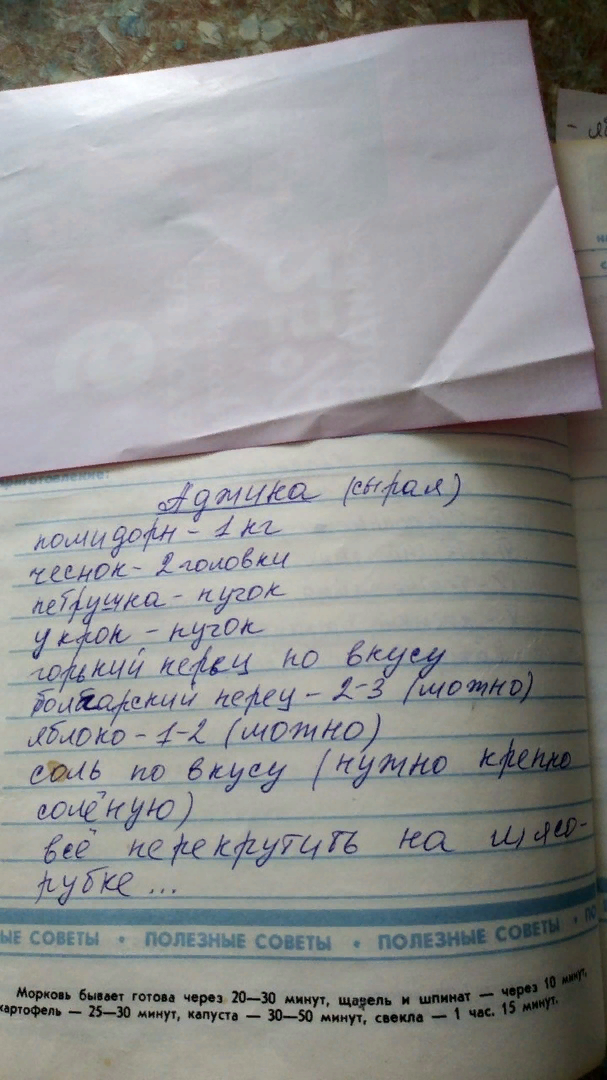 приготовление:
Аджика (сырая)
помидоры - 1 кг
чеснок - 2 головки
петрушка - пучок
укроп - пучок
горький перец по вкусу
болгарский перец - 2-3 (можно)
яблоко - 1-2 (можно)
соль по вкусу (нужно крепко
солёную)
всё перекрутить на мясо-
рубке...
ЫЕ СОВЕТЫ • ПОЛЕЗНЫЕ СОВЕТЫ • ПОЛЕЗНЫЕ СОВЕТЫ • ПО
Морковь бывает готова через 20—30 минут, щавель и шпинат — через 10 минут,
картофель — 25—30 минут, капуста — 30—50 минут, свекла — 1 час. 15 минут.